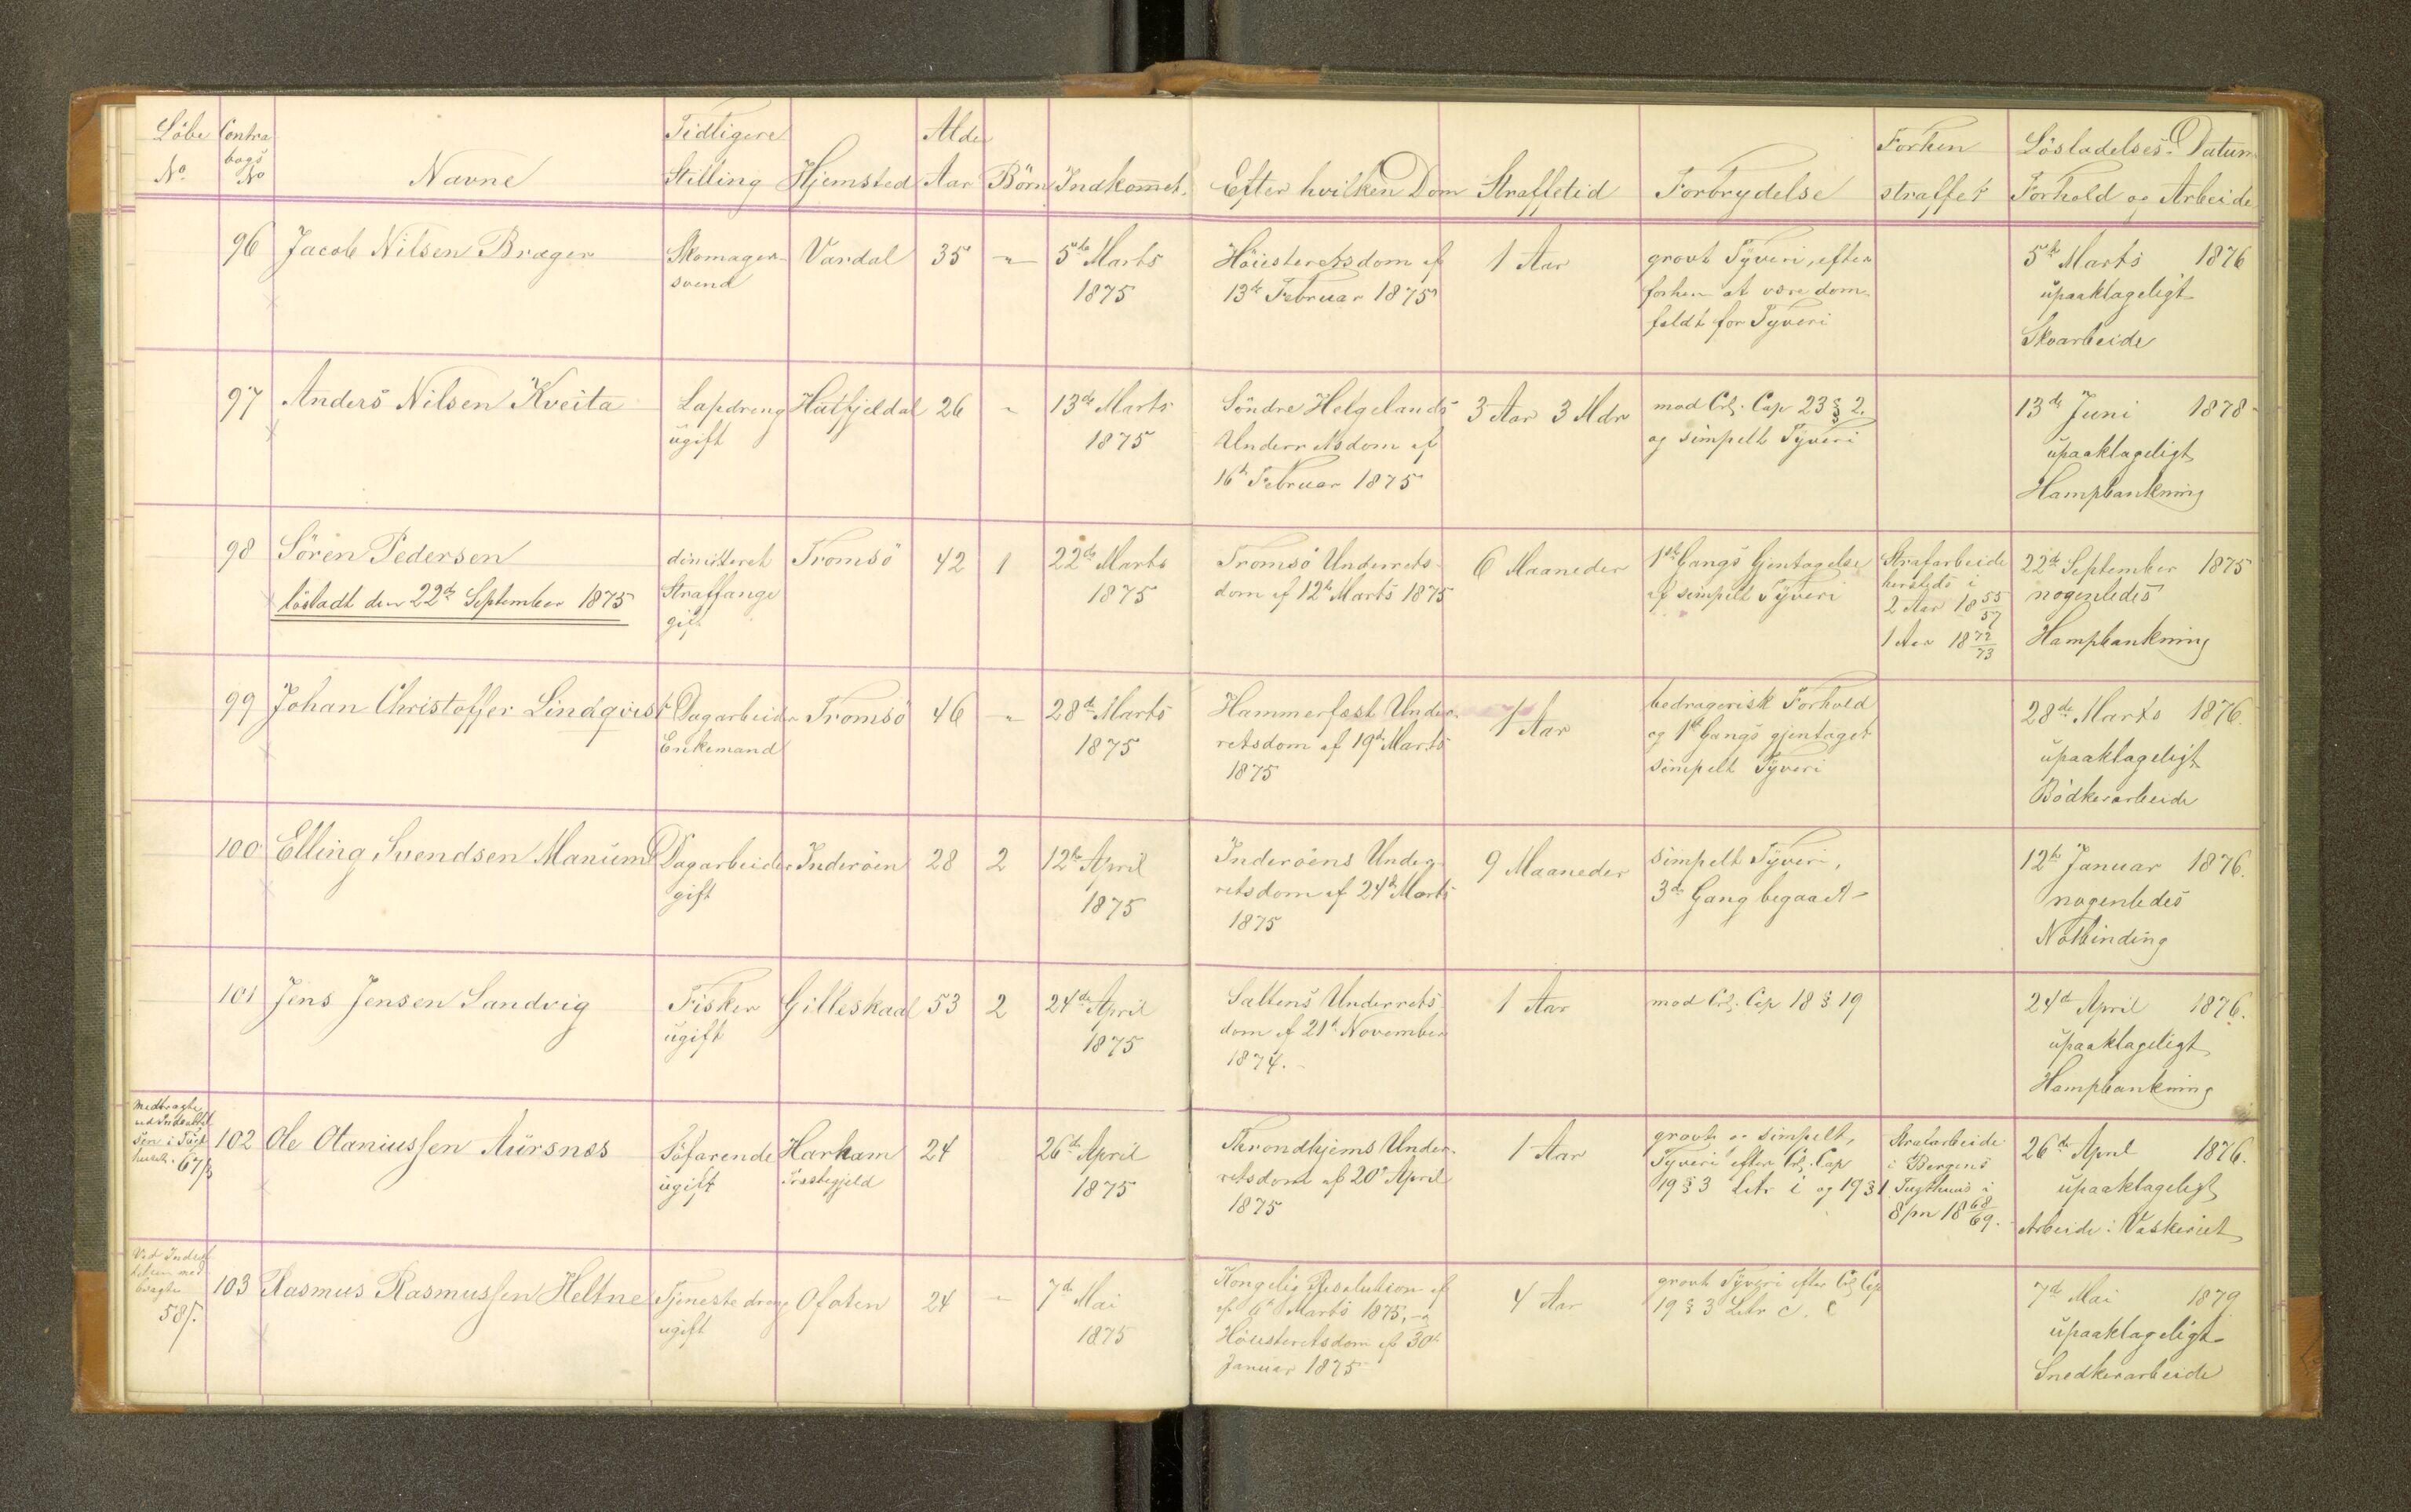 Löbe No
Contra bogs No
Navne
Tidligere Stilling
Hjemsted
Alder Aar
Börn
Indkommet
Efter hvilken Dom
Straffetid
Forbrydelse
Forhen straffet
Lösladelses-Datum
Forhold og Arbeide
96 Jacob Nilsen Bræger
Skomager-
svend
Vardal
35
"
5te Marts
1875
Höiesteretsdom af
13de Februar 1875
1 Aar
grovt Tyveri, efter
forhen at være dom-
fældt for Tyveri
5te Marts 1876
upaaklageligt
Skoarbeide
97 Anders Nilsen Kveita
Lapdreng
ugift
Hatfjeldal
26
"
13de Marts
1875
Söndre Helgelands
Underretsdom af
16de Februar 1875
3 Aar 3 Mdr
mod Crl. Cap 23 § 2.
og simpelt Tyveri
13de Juni 1878
upaaklageligt
Hampbankning
98 Sören Pedersen
löstadt den 22de September 1875
dimitteret
Straffange
gift
Tromsö
42
1
22de Marts
1875
Tromsö Underrets-
dom af 12te Marts 1875
6 Maaneder
1ste Gangs Gjentagelse
af simpelt Tyveri
Strafarbeide
hersteds i
2 Aar 18 55/57
1 Aar 18 72/73
22de September 1875
nogenledes
Hampbankning
99 Johan Christoffer Lindqvist
Dagarbeider
Enkemand
Tromsö
46
"
28de Marts
1875
Hammerfest Under-
retsdom af 19de Marts
1875
1 Aar
bedragerisk Forhold
og 1ste Gangs gjentaget
simpelt Tyveri
28de Marts 1876.
upaaklageligt
Bödkerarbeide
100 Elling Svendsen Manum
Dagarbeider
gift
Inderöen
28
2
12te April
1875
Inderöens Under-
retsdom af 24de Marts
1875
9 Maaneder
simpelt Tyveri,
3de Gang begaaet
12te Januar 1876.
nogenledes
Notbinding
101 Jens Jensen Sandvig
Fisker
ugift
Gilleskaal
53
2
24de April
1875
Saltens Underrets-
dom af 21de November
1874.
1 Aar
mod Crl. Cap 18 § 19
24de April 1876.
upaaklageligt
Hampbankning
Medbragte
67/3
102 Ole Otaniussen Aursnes
Söfarende
ugift
Harham
Præstegjeld
24
26de April
1875
Throndhjems Under-
retsdom af 20de April
1875
1 Aar
grovt og simpelt,
Tyveri efter Crl. Cap
19 § 3 Litr i og 19 § 1
Strafarbeide
i Bergens
Tugthuus i
8 m 18 68/69.
26de April 1876.
upaaklageligt
Arbeide i Vaskeriet
Ved Indsæt
telsen med
bragte
58/.
103 Rasmus Rasmussen Heltne
Tjenestedreng
ugift
Ofoten
24
"
7de Mai
1875
Kongelig Resolution af
af 6te Marts 1875,
Höiesteretsdom af 30te
Januar 1875
4 Aar
grovt Tyveri efter Crl Cap
19 § 3 Litr c. C
7de Mai 1879
upaaklageligt
Snedkerarbeide